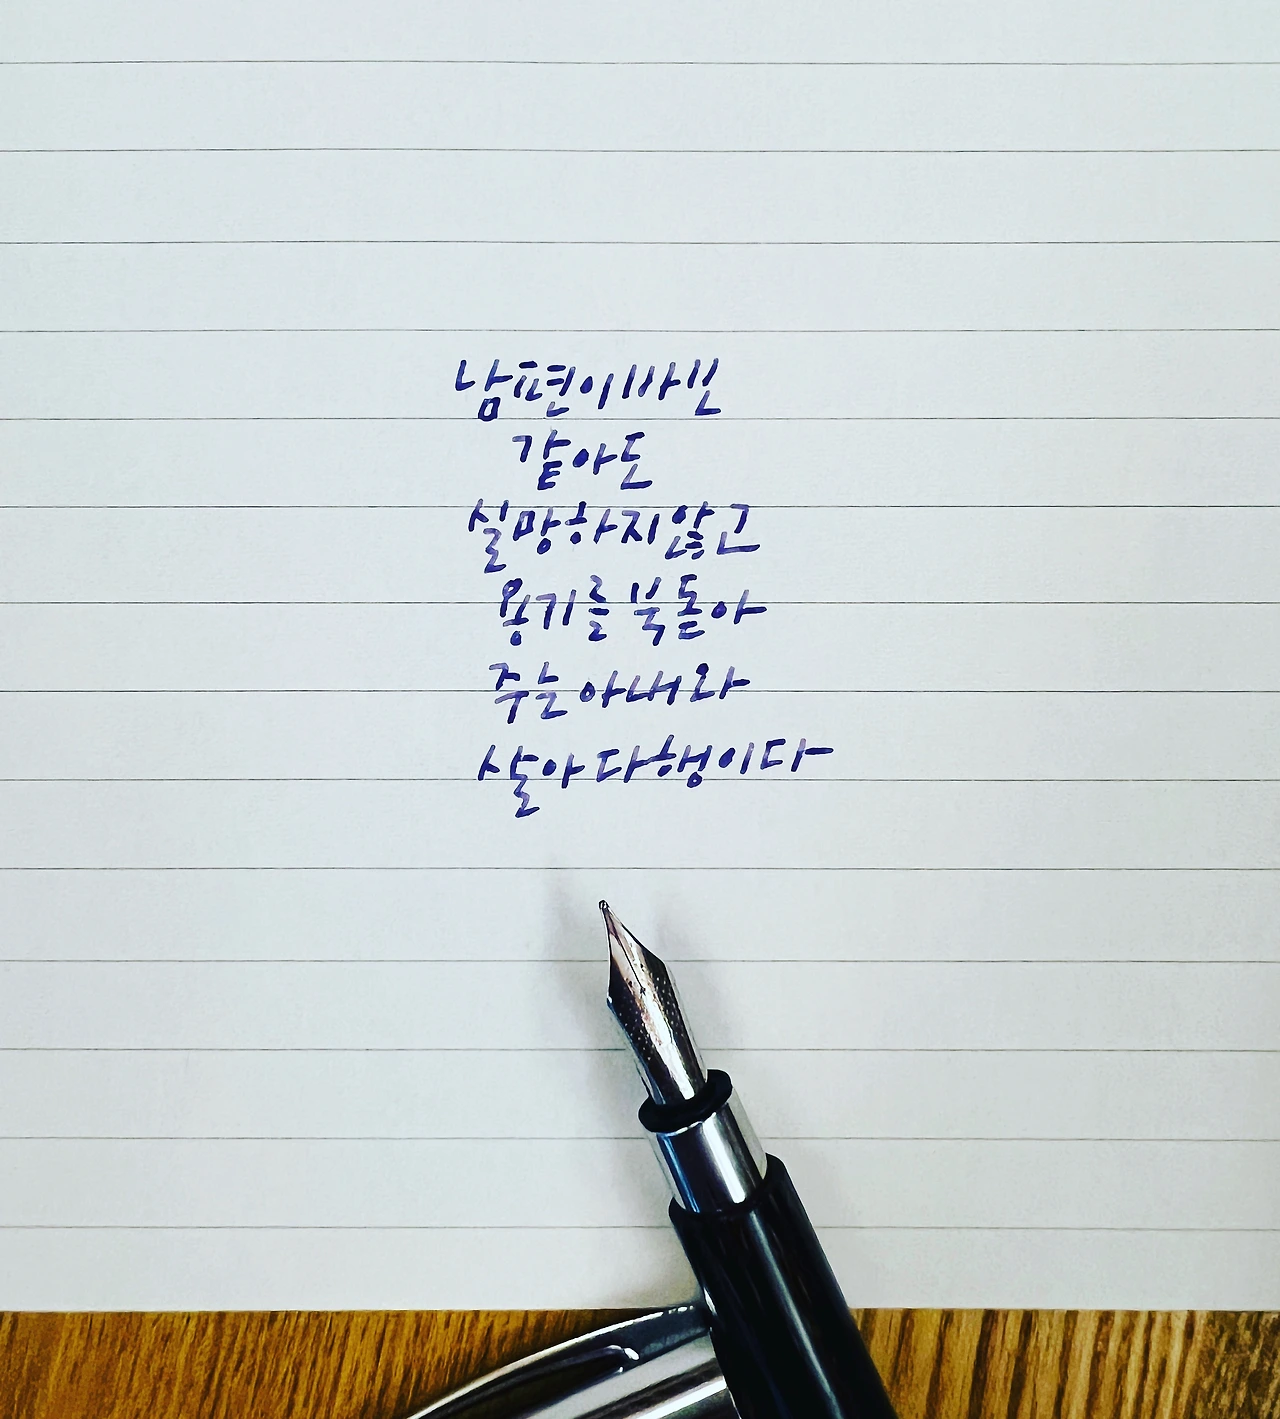 남편이 바보
같아도
실망하지 않고
용기를 북돋아
주는 아내와
살아 다행이다